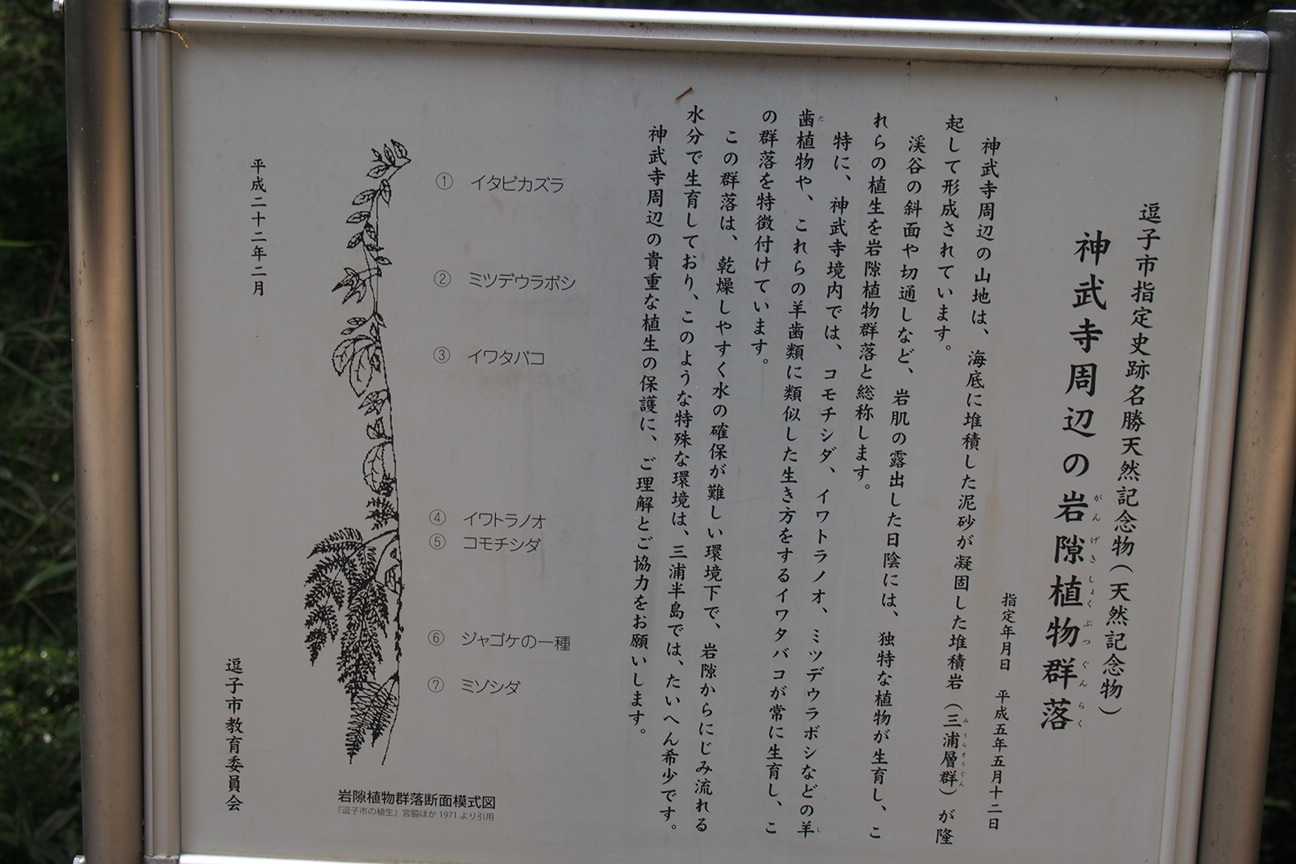 逗子市指定史跡名勝天然記念物(天然記念物)
神武寺周辺の岩隙植物群落
がんげきしょくぶつぐんらく
指定年月日 平成五年五月十二日
神武寺周辺の山地は、海底に堆積した泥砂が凝固した堆積岩(三浦層群)が隆
みうらそうぐん
起して形成されています。
渓谷の斜面や切通しなど、岩肌の露出した日陰には、独特な植物が生育し、こ
れらの植生を岩隙植物群落と総称します。
特に、神武寺境内では、コモチシダ、イワトラノオ、ミツデウラボシなどの羊
し
歯植物や、これらの羊歯類に類似した生き方をするイワタバコが常に生育し、こ
だ
の群落を特徴付けています。
この群落は、乾燥しやすく水の確保が難しい環境下で、岩隙からにじみ流れる
水分で生育しており、このような特殊な環境は、三浦半島では、たいへん希少です。
神武寺周辺の貴重な植生の保護に、ご理解とご協力をお願いします。
① イタビカズラ
② ミツデウラボシ
③ イワタバコ
④ イワトラノオ
⑤ コモチシダ
⑥ ジャゴケの一種
⑦ ミゾシダ
岩隙植物群落断面模式図
『逗子市の植生』宮脇ほか 1971 より引用
平成二十二年二月
逗子市教育委員会